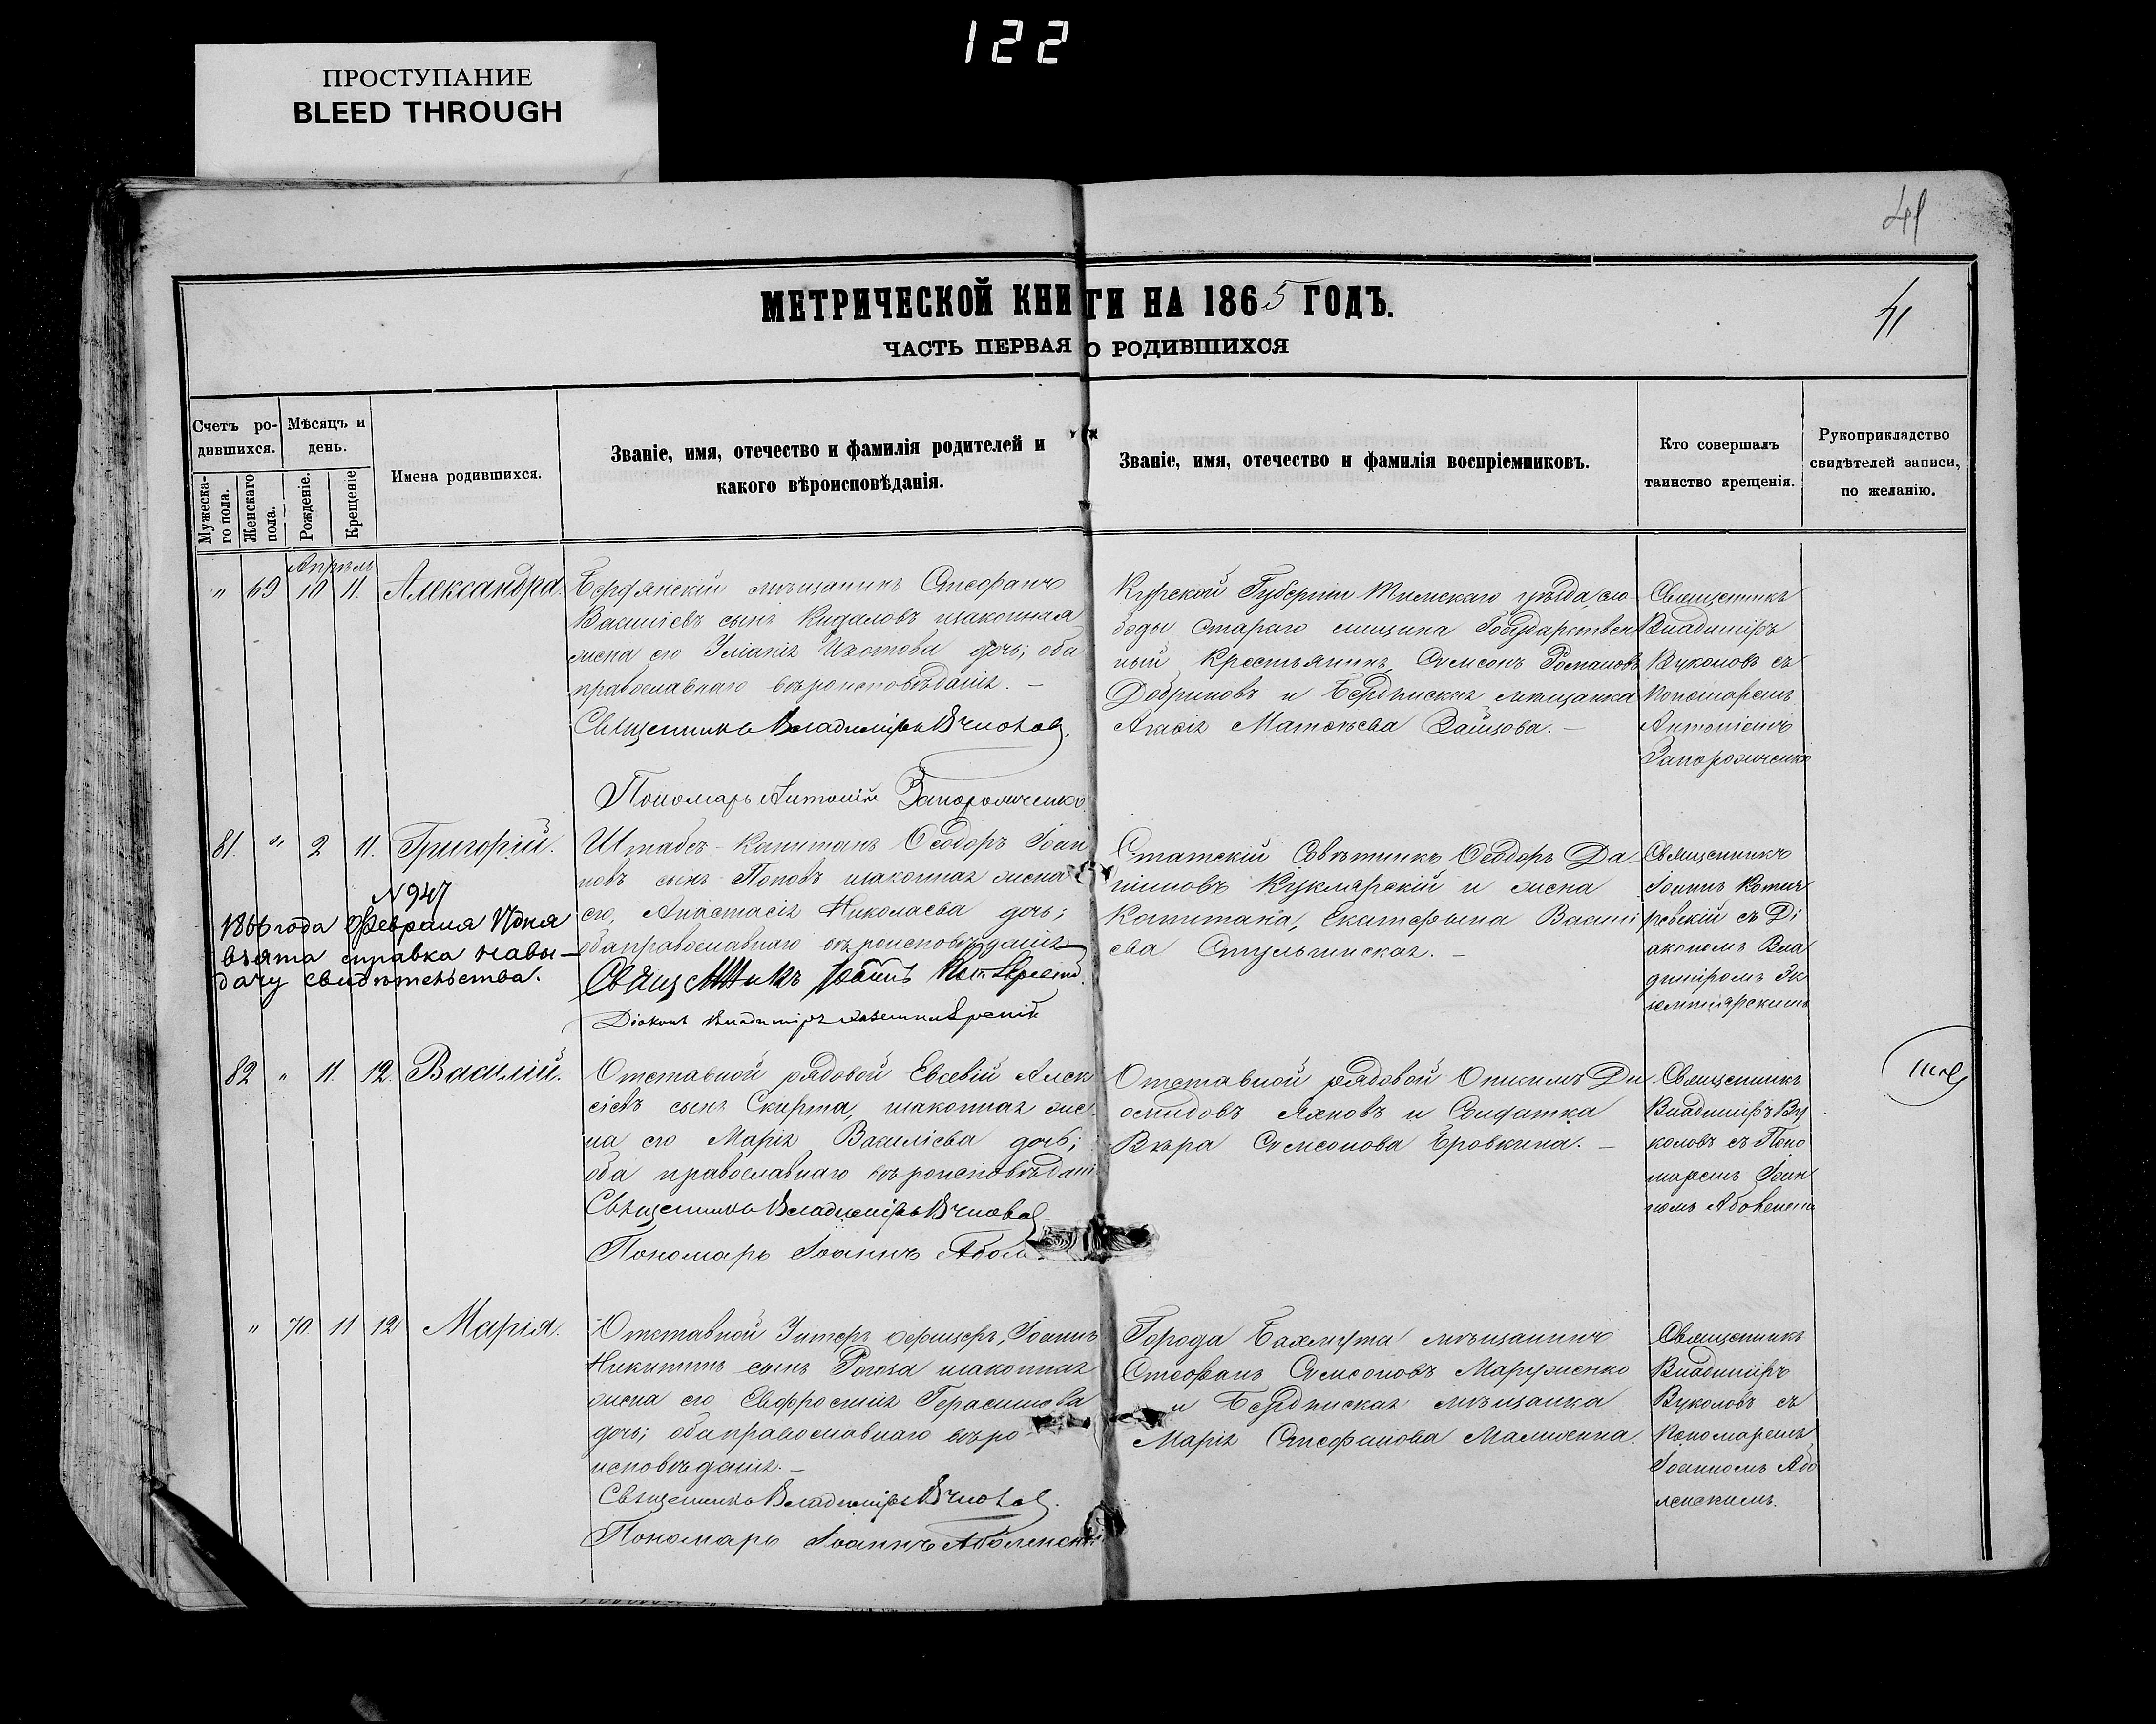 122
ПРОСТУПАНИЕ
BLEED THROUGH
41
МЕТРИЧЕСКОЙ КНИГИ НА 1865 ГОДЪ.
41
ЧАСТЬ ПЕРВАЯ О РОДИВШИХСЯ
Счетъ ро-
дившихся.
Мужеска-
го пола.
Женскаго
пола.
Мѣсяцъ и
день.
Рожденіе.
Крещеніе
Имена родившихся.
Званіе, имя, отечество и фамилія родителей и
какого вѣроисповѣданія.
Званіе, имя, отечество и фамилія воспріемниковъ.
Кто совершалъ
таинство крещенія.
Рукоприкладство
свидѣтелей записи,
по желанію.
Апрѣль
" 69 10 11. Александра.
Бердянскій мѣщанинъ Стефанъ
Василіевъ сынъ законная
жена его дочь; оба
православнаго вѣроисповѣданія. –
Священникъ Владиміръ Вуколовъ.
Пономарь Антоній Запорожченко
Курской Губерніи Тимскаго уѣзда, сло
боды Стараго Государствен
ный Крестьянинъ Сѵмсонъ Романовъ
Добриновъ и Бердянская мѣщанка
Матѳѣева Зайцова. –
Священникъ
Владиміръ
Вуколовъ съ
Пономаремъ
Антоніемъ
Запорожченко
81. " 2 11. Григорій.
N 947
1866 года Февраля дня
взята справка на вы-
дачу свидѣтельства.
Штабсъ-Капитанъ Ѳеодоръ Іоан
новъ сынъ Поповъ законная жена
его, Анастасія Николаева дочь;
оба православнаго вѣроисповѣданія
Священникъ Іоаннъ
Діаконъ Владиміръ
Статскій Совѣтникъ Ѳеодоръ Да
ніиловъ Кукмярскій и жена
Капитана, Екатерина Васили
ева
Священникъ
Іоаннъ
съ Ді
акономъ Вла
диміромъ
82 " 11. 12. Василій.
Отставной рядовой Евсевій Алек
сіевъ сынъ Скирта, законная же
на его Марія Василіева дочь;
оба православнаго вѣроисповѣдані
Священникъ Владиміръ Вуколовъ
Пономарь Іоаннъ
Отставной рядовой
и Солдатка
Вѣра Сѵмсонова Бровкина. –
Священникъ
Владиміръ Ву
коловъ съ Поно
маремъ Іоан
номъ
" 70. 11 12 Марія.
Отставной Унтеръ офицеръ, Іоаннъ
Никитинъ сынъ Рогоза законная
жена его Евфросинія Герасимова
дочь; оба православнаго вѣро
исповѣданія. –
Священникъ Владиміръ Вуколовъ.
Пономарь Іоаннъ Аболенскі
Города Бахмута мѣщанинъ
Стефанъ Сѵмсоновъ Маруженко
и Бердянская мѣщанка
Марія Стефанова
Священникъ
Владиміръ
Вуколовъ съ
Пономаремъ
Іоанномъ Або
ленскимъ.